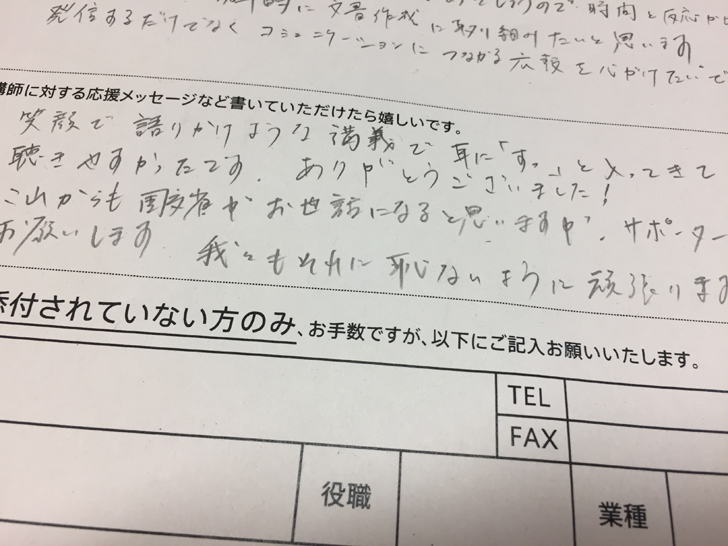 時に文書作成に取り組みたいと思います
発信するだけでなくコミュニケーションにつながる広報を心がけたいで
講師に対する応援メッセージなど書いていただけたら嬉しいです。
笑顔で語りかけような講義で耳に「すっ」と入ってきて
聴きやすかったです。ありがとうございました!
これからも国交省がお世話になると思いますが、サポーター
お願いします 我々もそれに恥ないように頑張ります
添付されていない方のみ、お手数ですが、以下にご記入お願いいたします。
TEL
FAX
役職
業種